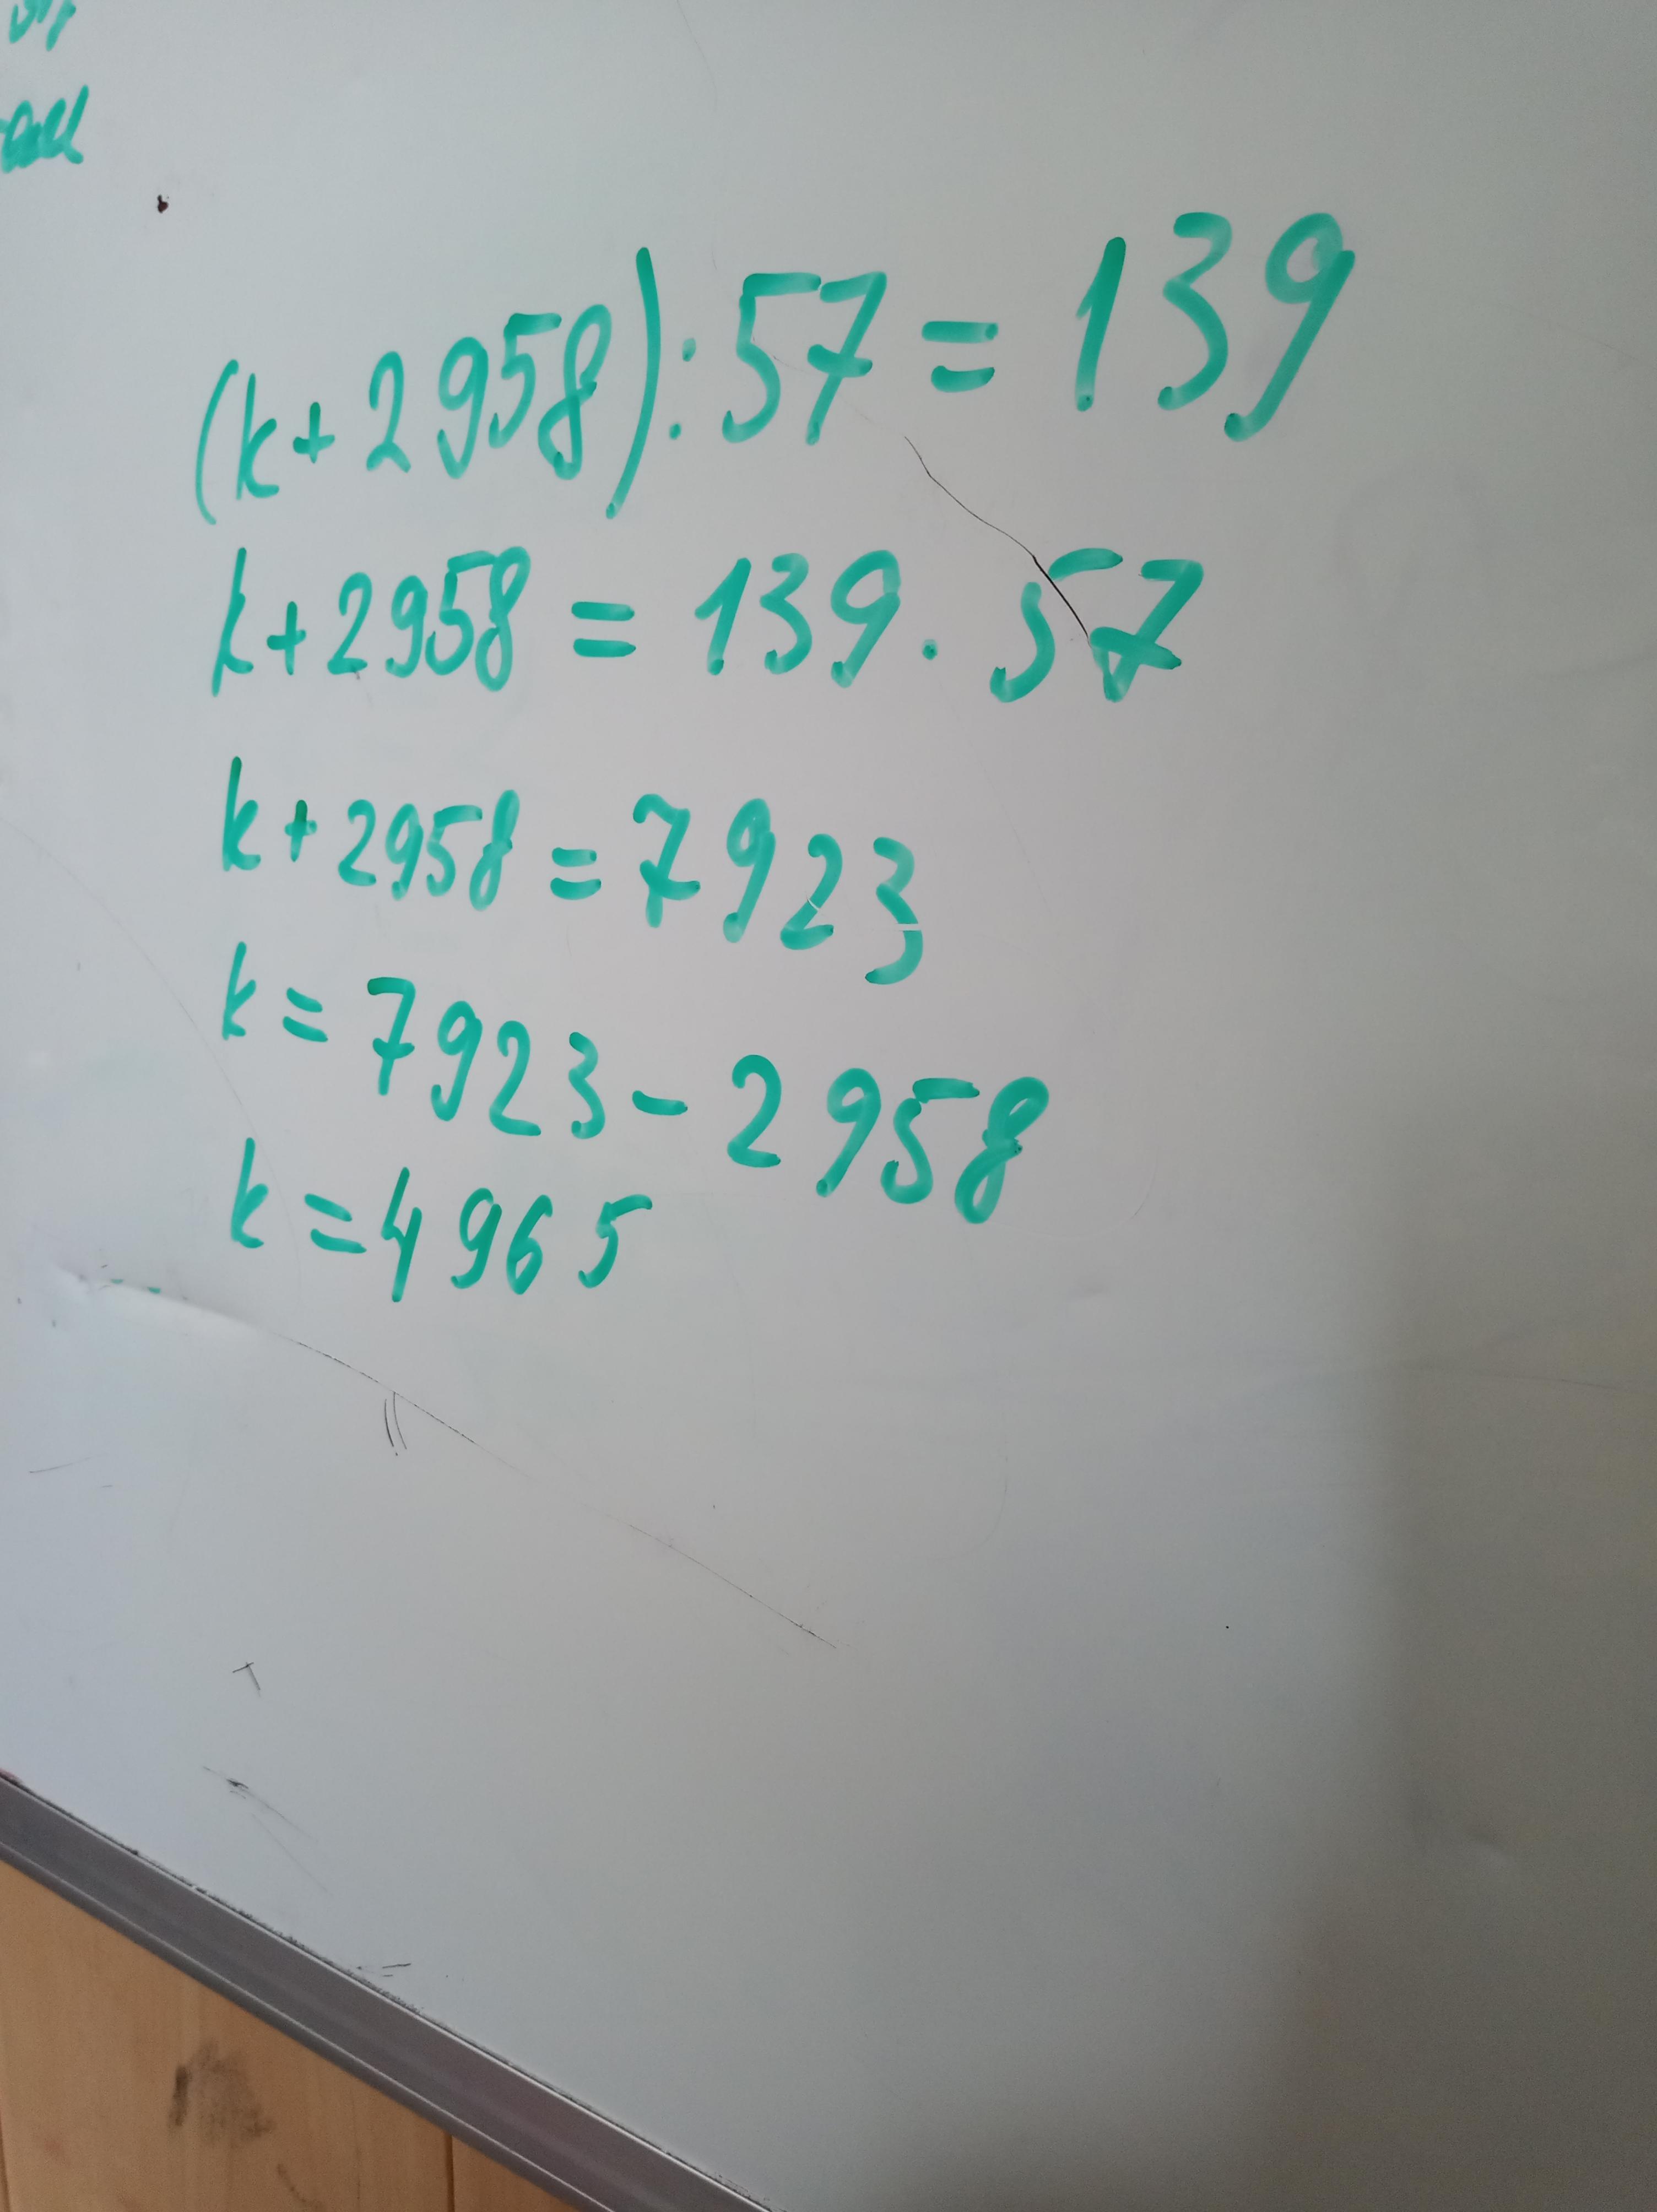 (k+2958):57=139
k+2958=139·57
k+2958=7923
k=7923-2958
k=4965